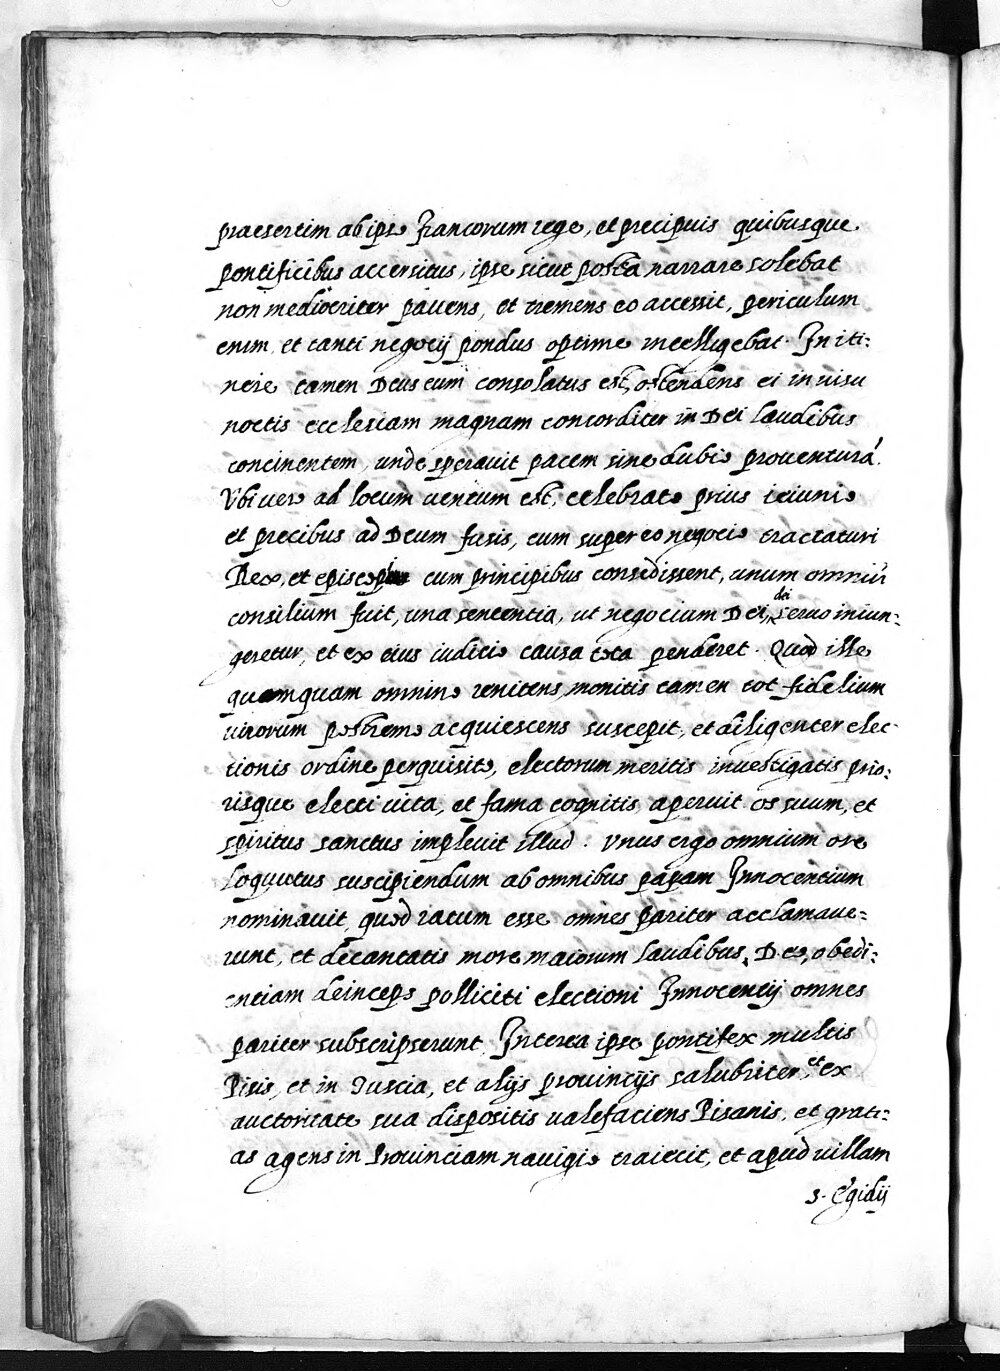 praesertim ab ipso Francorum rege, et precipuis quibusque
pontificibus accersitus, ipse sicut postea narrare solebat
non mediocriter pauens, et tremens eo accessit, periculum
enim et tanti negocij pondus optime intelligebat. In iti:
nere tamen Deus eum consolatus est, ostendens ei in uisu
noctis ecclesiam magnam concorditer in Dei laudibus
concinentem, unde sperauit pacem sine dubio prouenturā.
Vbi uero ad locum uentum est, celebrato prius ieiunio
et precibus ad Deum fusis, cum super eo negocio tractaturi
Rex, et episcopi cum principibus consedissent, unum omniū
consilium fuit, una sententia, ut negocium Dei, dei seruo iniun:
geretur, et ex eius iudicio causa tota penderet. Quod ille
quamquam omnino renitens, monitis tamen tot fidelium
uirorum postremo acquiescens suscepit, et diligenter elec
tionis ordine perquisito, electorum meritis inuestigatis prio:
risque electi uita, et fama cognitis, aperuit os suum, et
spiritus sanctus impleuit illud: Vnus ergo omnium ore
loquutus suscipiendum ab omnibus papam Innocentium
nominauit, quod ratum esse omnes pariter acclamaue:
runt, et decantatis more maiorum laudibus, Deo, obedi:
entiam deinceps polliciti electioni Innocentij omnes
pariter subscripserunt. Interea ipse pontifex multis
Pisis, et in Tuscia, et alijs prouincijs salubriter, et ex
auctoritate sua dispositis ualefaciens Pisanis, et grati:
as agens in Prouinciam nauigio traiecit, et apud uillam
s. Egidij